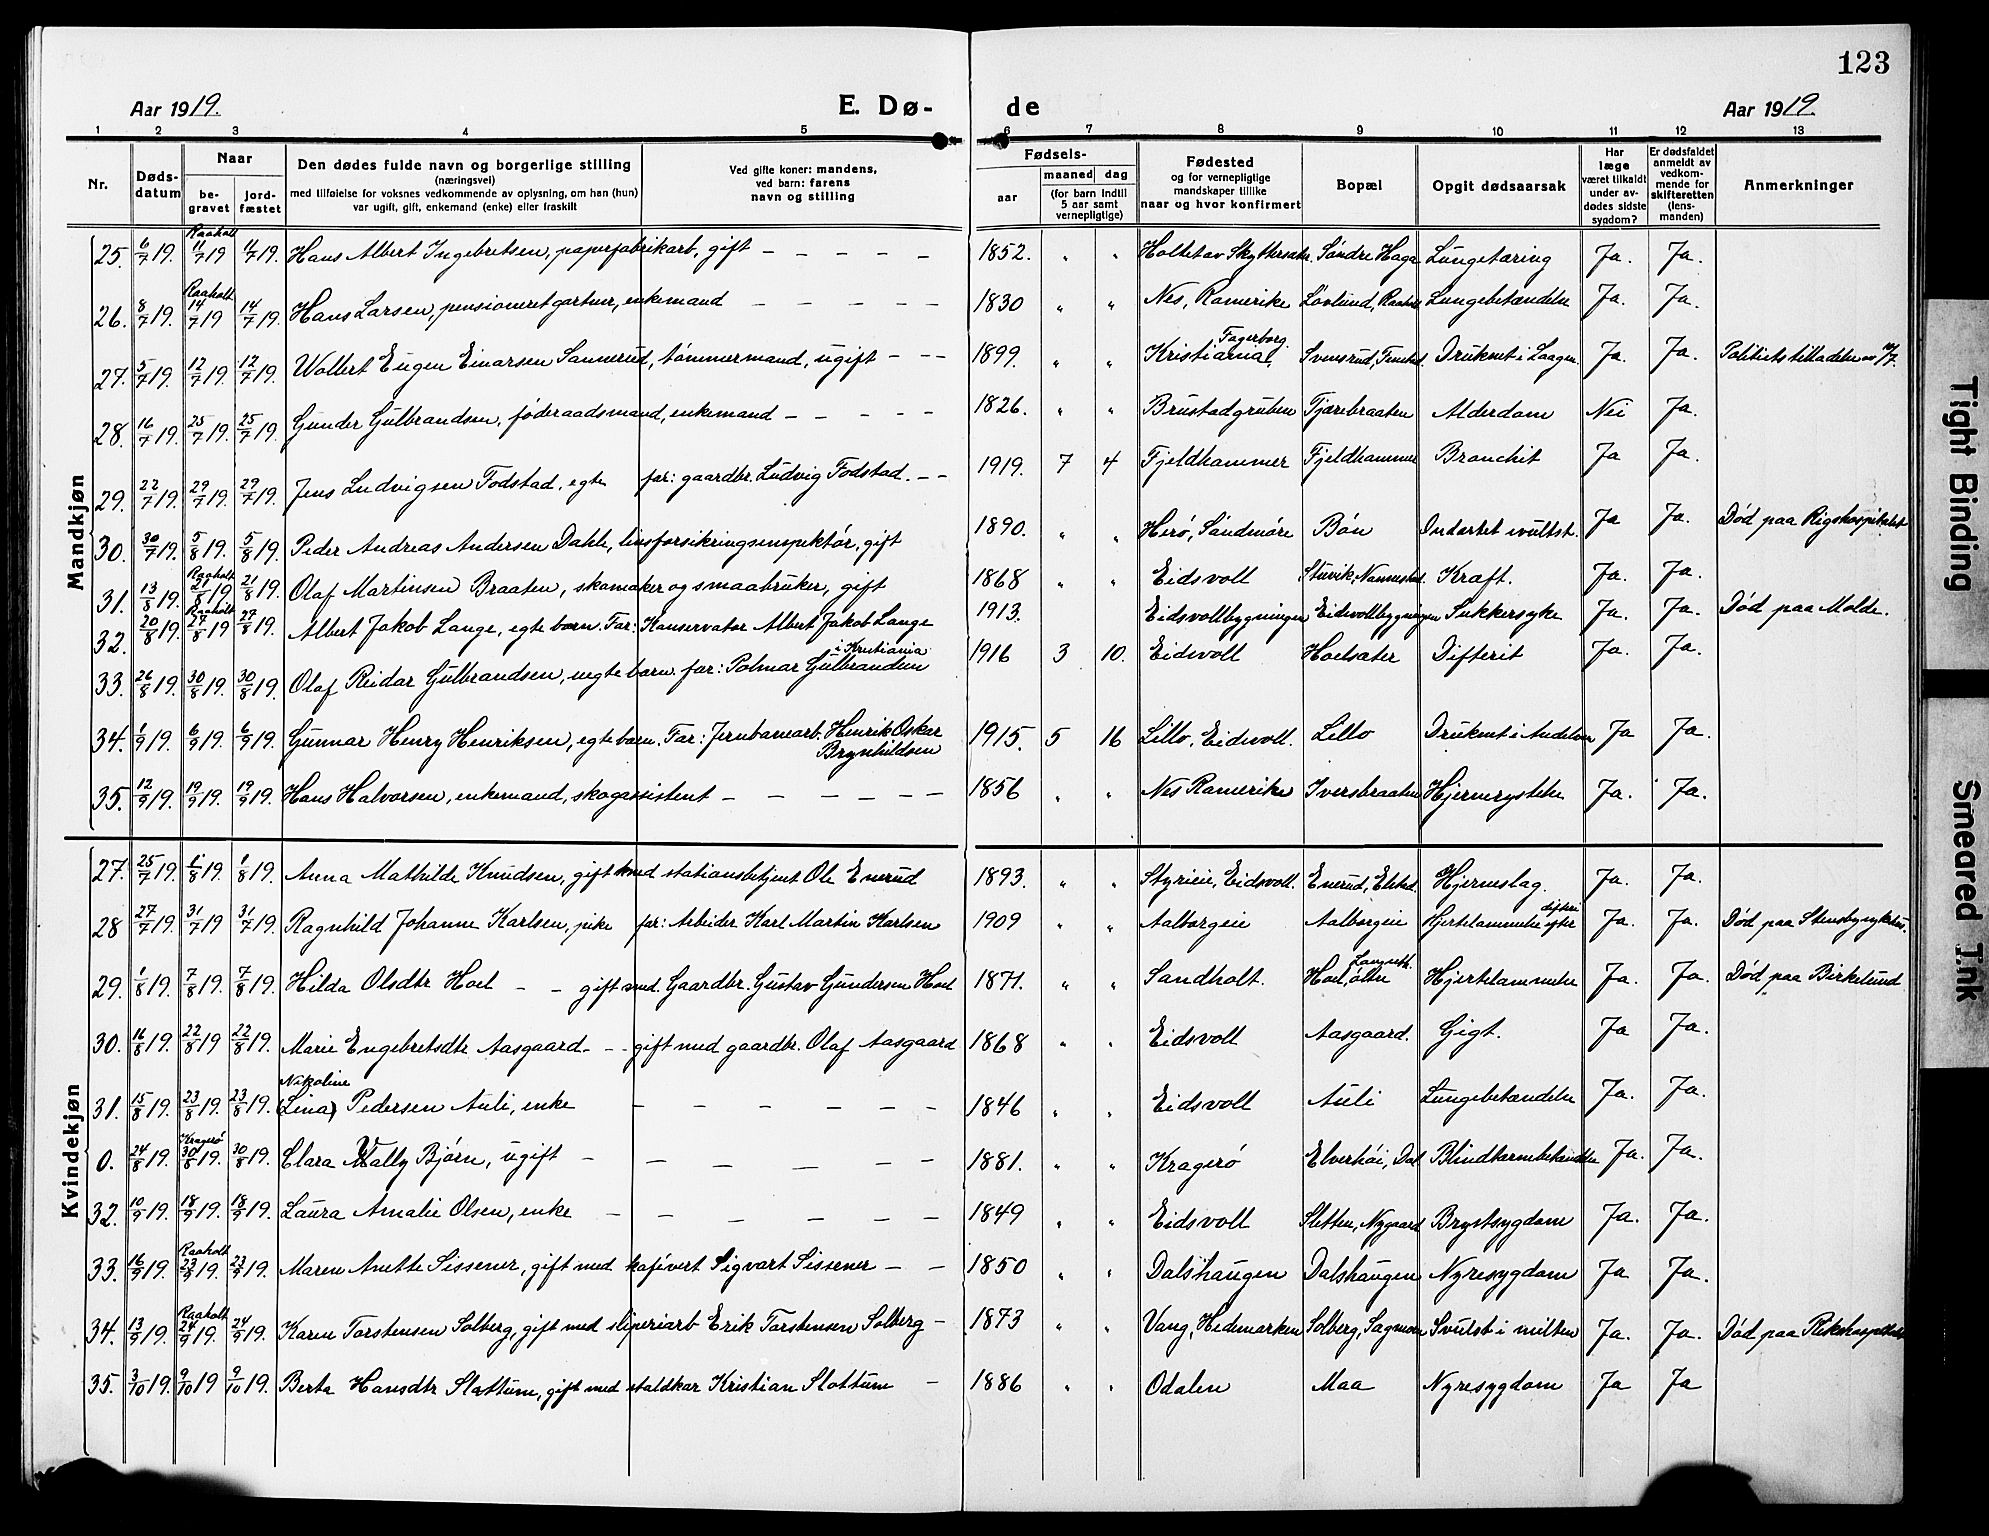 123
Aar 1919. E. Dø- de Aar 1919.
1 2 3 4 5 6 7 8 9 10 11 12 13
Nr. Døds-datum Naar be-gravet jord-fæstet Den dødes fulde navn og borgerlige stilling (næringsvei) med tilføielse for voksnes vedkommende av oplysning, om han (hun) var ugift, gift, enkemand (enke) eller fraskilt Ved gifte koner: mandens, ved barn: farens navn og stilling Fødsels- aar maaned dag (for barn indtil 5 aar samt vernepligtige) Fødested og for vernepligtige mandskaper tillike naar og hvor konfirmert Bopæl Opgit dødsaarsak Har læge været tilkaldt under av-dødes sidste sygdom? Er dødsfaldet anmeldt av vedkom-mende for skifteretten (lens-manden) Anmerkninger
Mandkjøn
25. 6/7 19. Raaholt 11/7 19 11/7 19. Hans Albert Ingebretsen, papirfabrikarb, gift — — — — — 1852. " " Holtet av Skyttersæter. Søndre Haga Lungetæring Ja. Ja.
26. 8/7 19. Raaholt 14/7 19 14/7 19. Hans Larsen, pensioneret gartner, enkemand — — — — — 1830 " " Nes, Romerike Løvlund, Raaholt Lungebetændelse Ja. Ja.
27. 5/7 19. 12/7 19. 12/7 19. Wolbert Eugen Einarsen Sannerud, tømmermand, ugift — — — 1899. " " Kristiania, Fagerborg Svensrud, Finstad. Druknet i Laagen Ja. Ja. Politiets tilladelse av
28. 16/7 19. 25/7 19. 25/7 19. Gunder Gulbrandsen, føderaadsmand, enkemand — — — — — 1826. " " Brustadgruben Tjærebraaten Alderdom Nei Ja.
29. 22/7 19. 29/7 19. 29/7 19. Jens Ludvigsen Fodstad, egte far: gaardbr. Ludvig Fodstad. — — 1919. 7 4 Fjeldhammer Fjeldhammer Bronchit Ja Ja.
30. 30/7 19. 5/8 19. 5/8 19. Peder Andreas Andersen Dahle, livsforsikringsinspektør, gift 1890. " " Herø, Søndmøre Bøn Ondartet svulst. Ja Ja. Død paa Rigshospitalet
31. 13/8 19. Raaholt 21/8 19 21/8 19. Olaf Martinsen Braaten, skomaker og smaabruker, gift 1868 " " Eidsvoll Stuvik, Nannestad. Kræft. Ja. Ja.
32. 20/8 19. Raaholt 27/8 19 27/8 19. Albert Jakob Lange, egte barn. Far: Konservator Albert Jakob Lange 1913. Eidsvollbygningen Eidsvollbygningen Sukkersyke Ja. Ja. Død paa Molde.
33. 26/8 19. 30/8 19. 30/8 19. Olaf Reidar Gulbrandsen, uegte barn. far: Polmar Gulbrandsen i Kristiania 1916 3 10. Eidsvoll Hoelsæter Difterit Ja. Ja.
34. 1/9 19. 6/9 19. 6/9 19. Gunnar Henry Henriksen, egte barn. Far: Jernbanearb. Henrik Oskar Brynhildsen 1915. 5 16 Lillo, Eidsvoll. Lillo Druknet i Andelven Ja Ja.
35. 12/9 19. 19/9 19. 19/9 19. Hans Halvorsen, enkemand, skogassistent — — — — — — 1856 " " Nes Romerike Iversbraaten Hjernerystelse Ja. Ja.
Kvindekjøn
27. 25/7 19. 1/8 19. 1/8 19. Anna Mathilde Knudsen, gift med stationsbetjent Ole Enerud 1893. " " Styrieie, Eidsvoll. Enerud, Elstad. Hjerneslag. Ja. Ja.
28 27/7 19. 31/7 19 31/7 19. Ragnhild Johanne Karlsen, pike far: Arbeider Karl Martin Karlsen 1909 " " Aalborgeie Aalborgeie Hjertelammelse efter difteri Ja. Ja. Død paa Stensbysykehus.
29. 1/8 19. 7/8 19. 7/8 19. Hilda Olsdtr Hoel — — gift med Gaardbr. Gustav Gundersen Hoel 1871. " " Sandholt. Hoel, østre Langseth. Hjertelammelse Ja. Ja. Død paa Birkelund
30. 16/8 19. 22/8 19 22/8 19. Marie Engebretsdtr Aasgaard — — gift med gaardbr. Olaf Aasgaard 1868 " " Eidsvoll Aasgaard. Gigt. Ja Ja.
31. 15/8 19. 23/8 19. 23/8 19. Nikoline (Lina) Pedersen Auli, enke — — — — — — 1846 " " Eidsvoll Auli Lungebetændelse Ja. Ja.
0. 24/8 19. Kragerø 30/8 19. 30/8 19. Clara Wally Bjørn, ugift — — — — — — 1881. " " Kragerø Elverhøi, Dal Blindtarmbetændelse Ja. Ja.
32. 10/9 19. 18/9 19. 18/9 19. Laura Amalie Olsen, enke — — — — — — 1849 " " Eidsvoll Sletten, Nygaard Brystsygdom Ja. Ja.
33. 16/9 19. Raaholt 23/9 19. 23/9 19. Maren Anette Sissener, gift med kafévert Sigvart Sissener — — 1850 " " Dalshaugen Dalshaugen Nyresygdom Ja Ja.
34. 13/9 19. Raaholt 24/9 19. 24/9 19. Karen Torstensen Solberg, gift med sliperiarb Erik Torstensen Solberg — 1873 " " Vang, Hedemarken Solberg, Sagmoen Svulst i milten Ja. Ja. Død paa Rikshospitalet
35. 3/10 19. 9/10 19 9/10 19. Berta Hansdtr Slottum, gift med staldkar Kristian Slottum — 1886 " " Odalen Maa Nyresygdom Ja Ja
Tight Binding
Smeared Ink